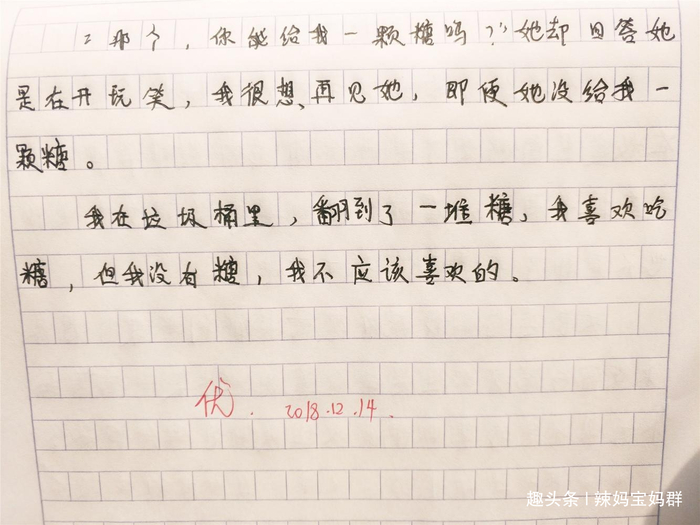 “那个，你能给我一颗糖吗？”她却回答她
是在开玩笑，我很想再见她，即便她没给我一
颗糖。
我在垃圾桶里，翻到了一堆糖，我喜欢吃
糖，但我没有糖，我不应该喜欢的。
优.2018.12.14.
趣头条|辣妈宝妈群